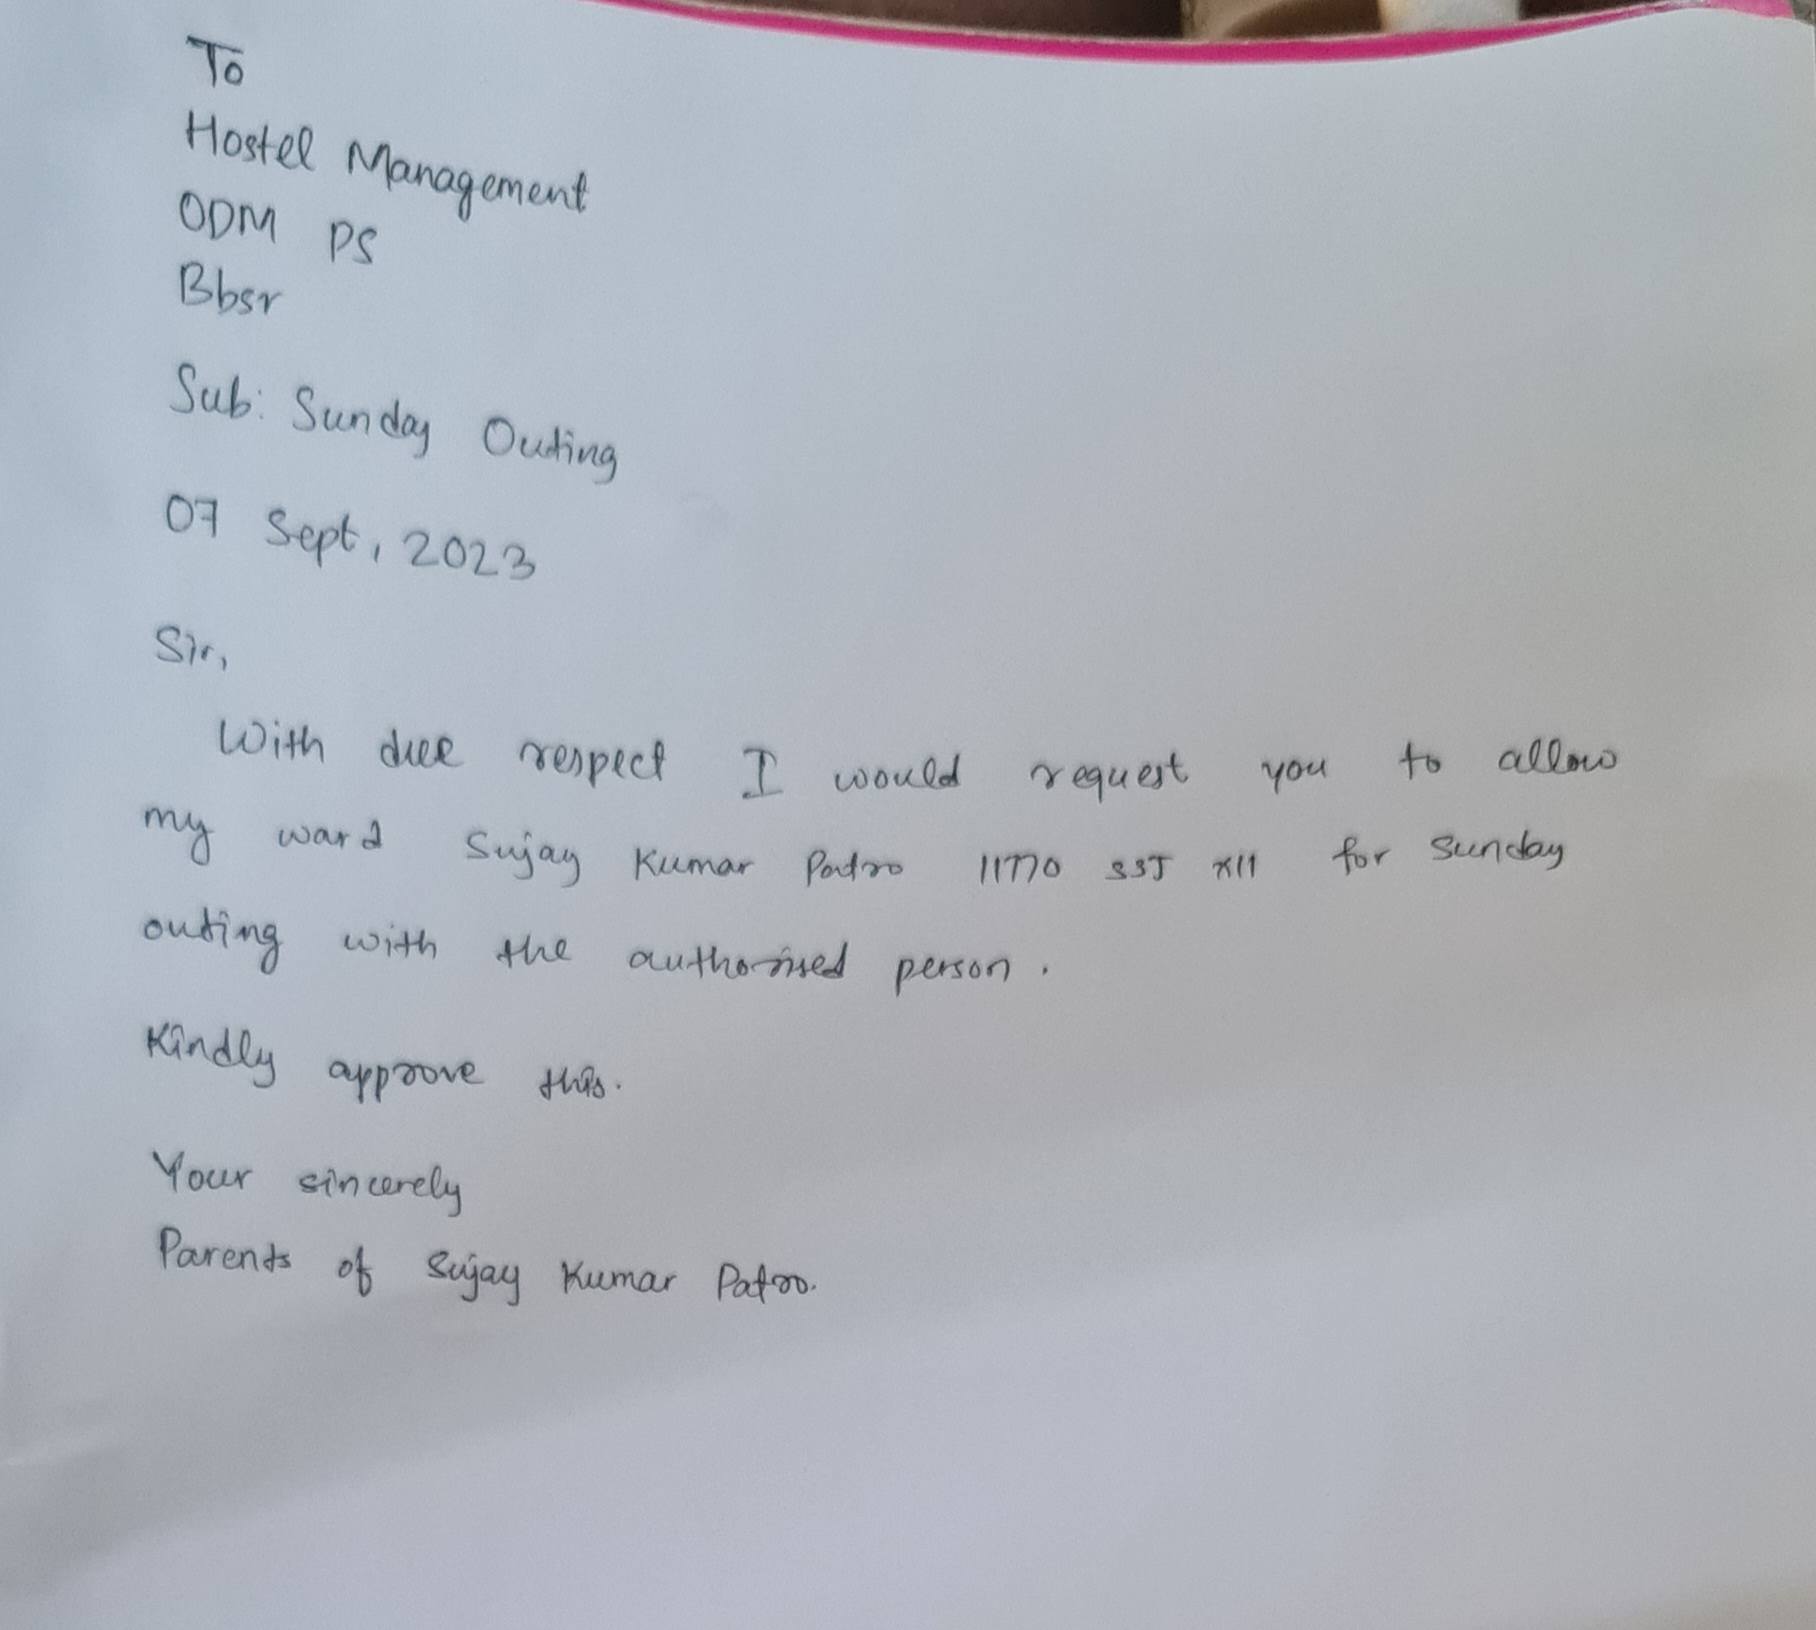 To
Hostel Management
ODM PS
Bbsr
Sub: Sunday Outing
07 Sept, 2023
Sir,
With due respect I would request you to allow
my ward Sujay Kumar Patro 11770 SSJ XII for Sunday
outing with the authorised person.
Kindly approve this.
Your sincerely
Parents of Sujay Kumar Patro.